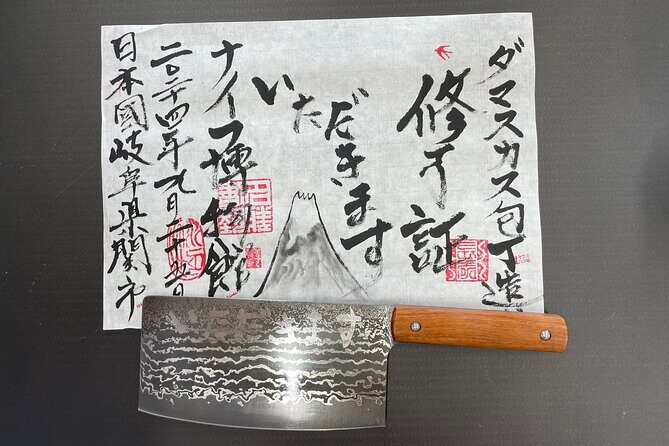 ダマスカス包丁造り
修了証
いただきます
ナイフ博物館
二〇二四年九月二十九日
日本國岐阜県関市